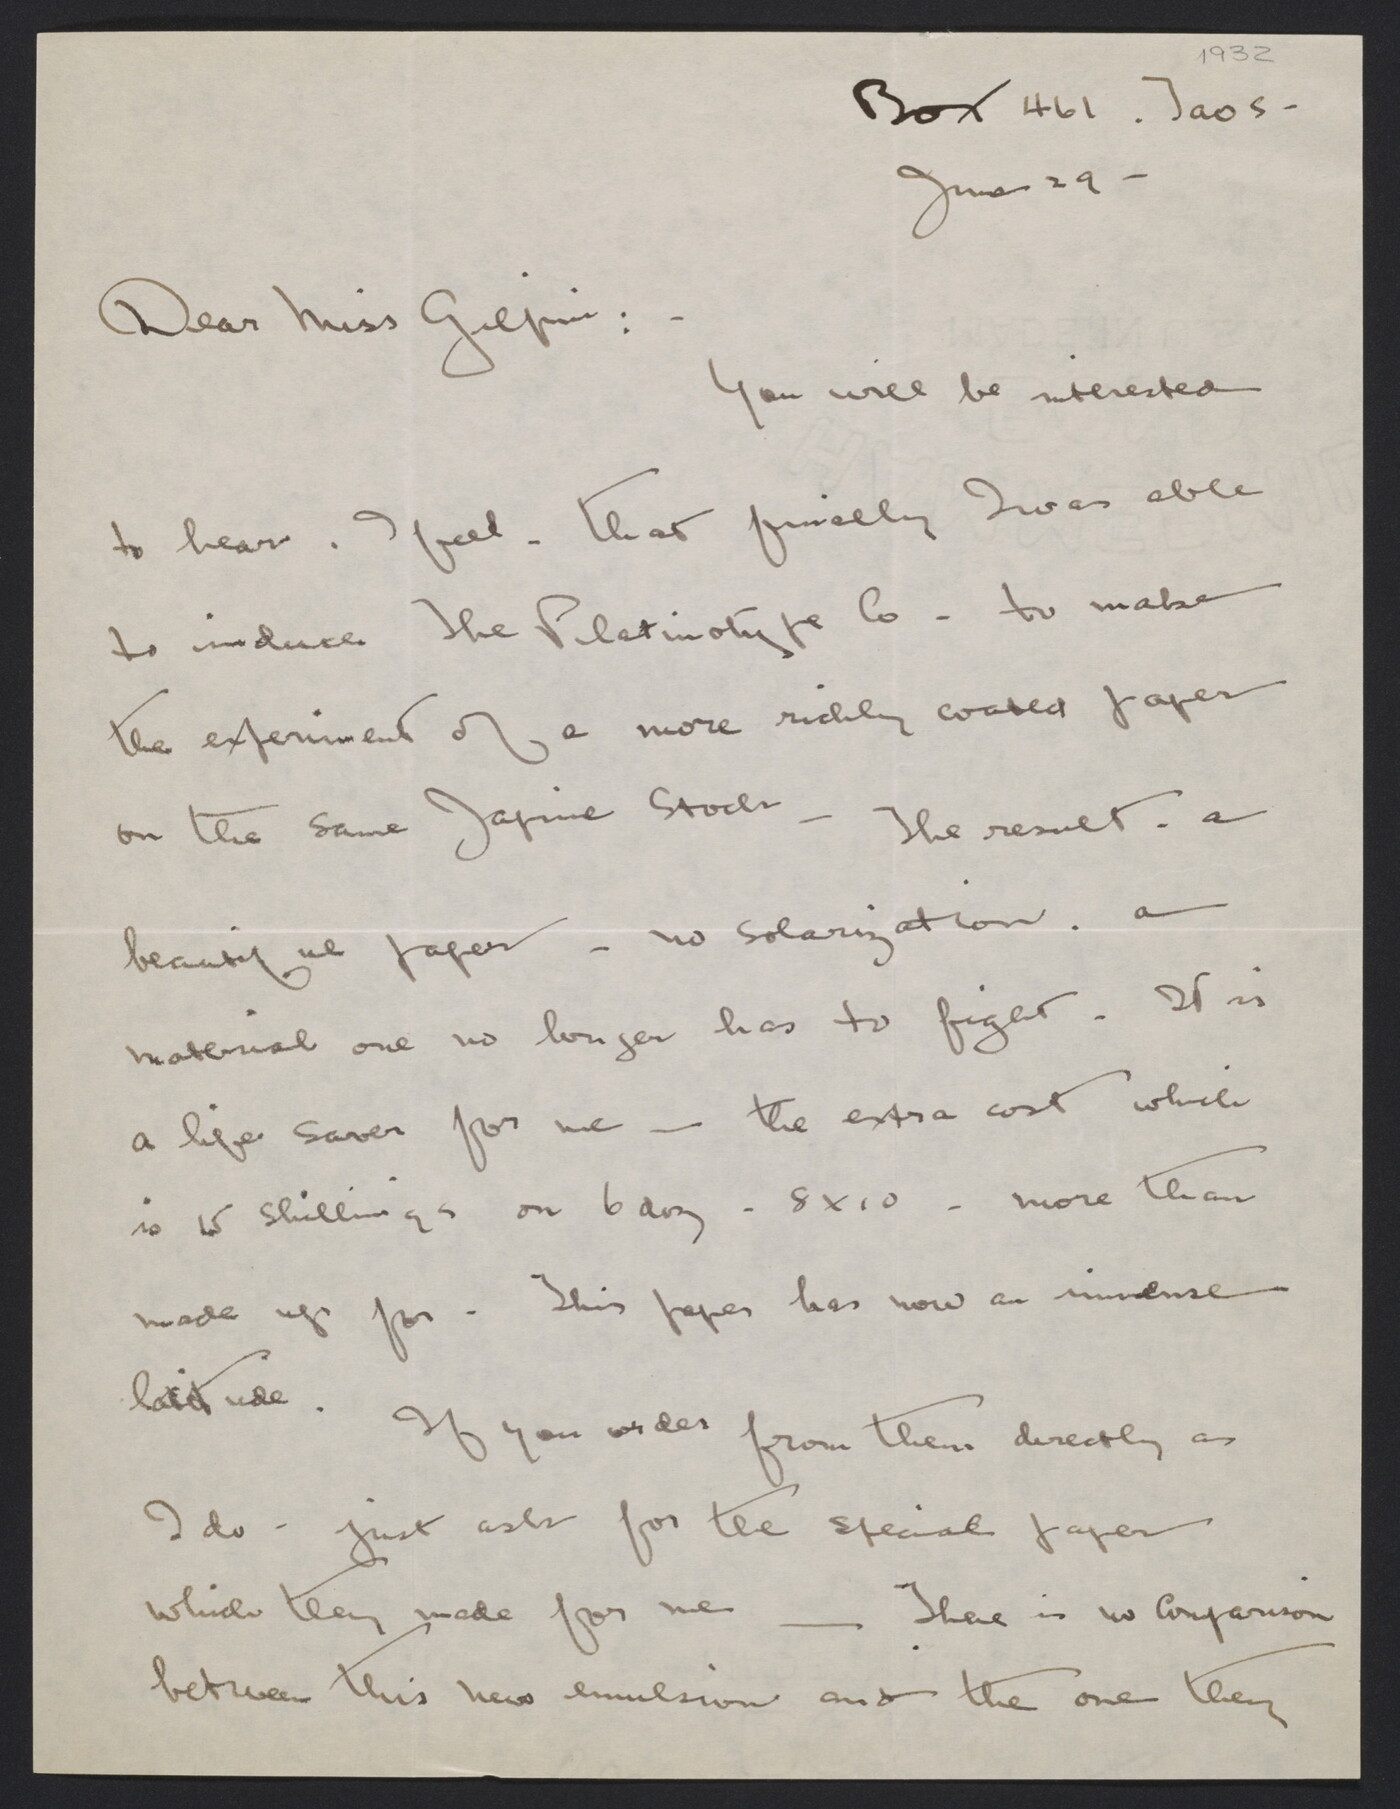 1932
Box 461. Taos -
June 29 -
Dear Miss Gilpin: -
You will be interested
to hear. I feel - that finally I was able
to induce The Platinotype Co - to make
the experiment of a more richly coated paper
on the same Japine Stock - The result - a
beautiful paper - no solarization. a
material one no longer has to fight - It is
a life saver for me - the extra cost which
is 15 shillings on 6 doz - 8x10 - more than
made up for - This paper has now an immense
latitude. If you order from them directly as
I do - just ask for the special paper
which they made for me — There is no Comparison
between this new emulsion and the one they